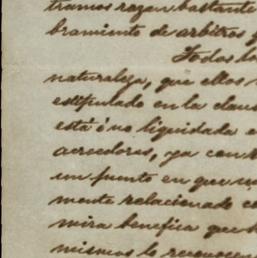 tramos razon bastante
bramiento de arbitros
Todos lo
naturaleza, que ellos
estipulado en la claus
está ó no liquidada e
acreedores, ya con
un punto en que
mente relacionado co
mira benefica que
mismos lo reconocen